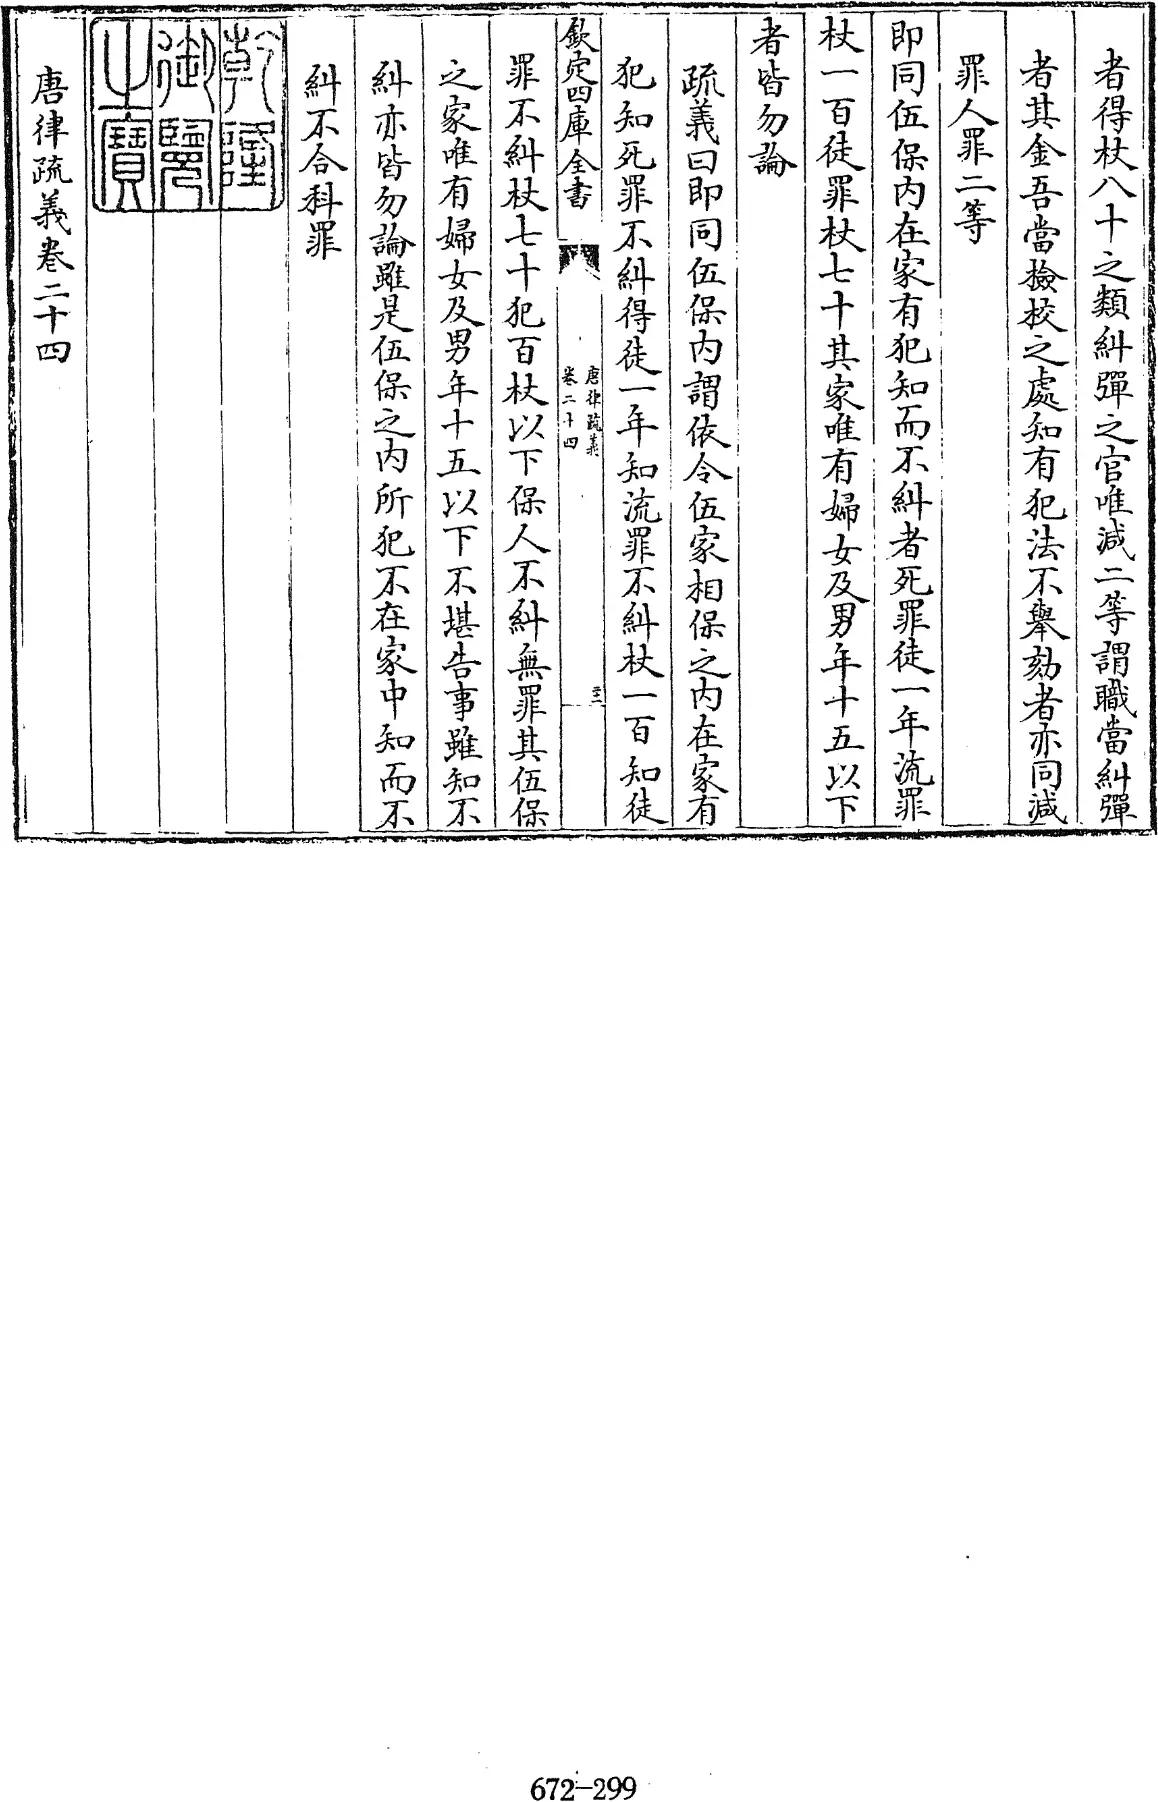 者得杖八十之類糾彈之官唯減二等謂職當糾彈
者其金吾當檢校之處知有犯法不舉劾者亦同減
罪人罪二等
即同伍保内在家有犯知而不糾者死罪徒一年流罪
杖一百徒罪杖七十其家唯有婦女及男年十五以下
者皆勿論
疏義曰即同伍保内謂依令伍家相保之内在家有
犯知死罪不糾得徒一年知流罪不糾杖一百知徒
欽定四庫全書
唐律疏義
卷二十四
罪不糾杖七十犯百杖以下保人不糾無罪其伍保
之家唯有婦女及男年十五以下不堪告事雖知不
糾亦皆勿論雖是伍保之内所犯不在家中知而不
糾不合科罪
乾隆
御覽
之寶
唐律疏義卷二十四
672-299